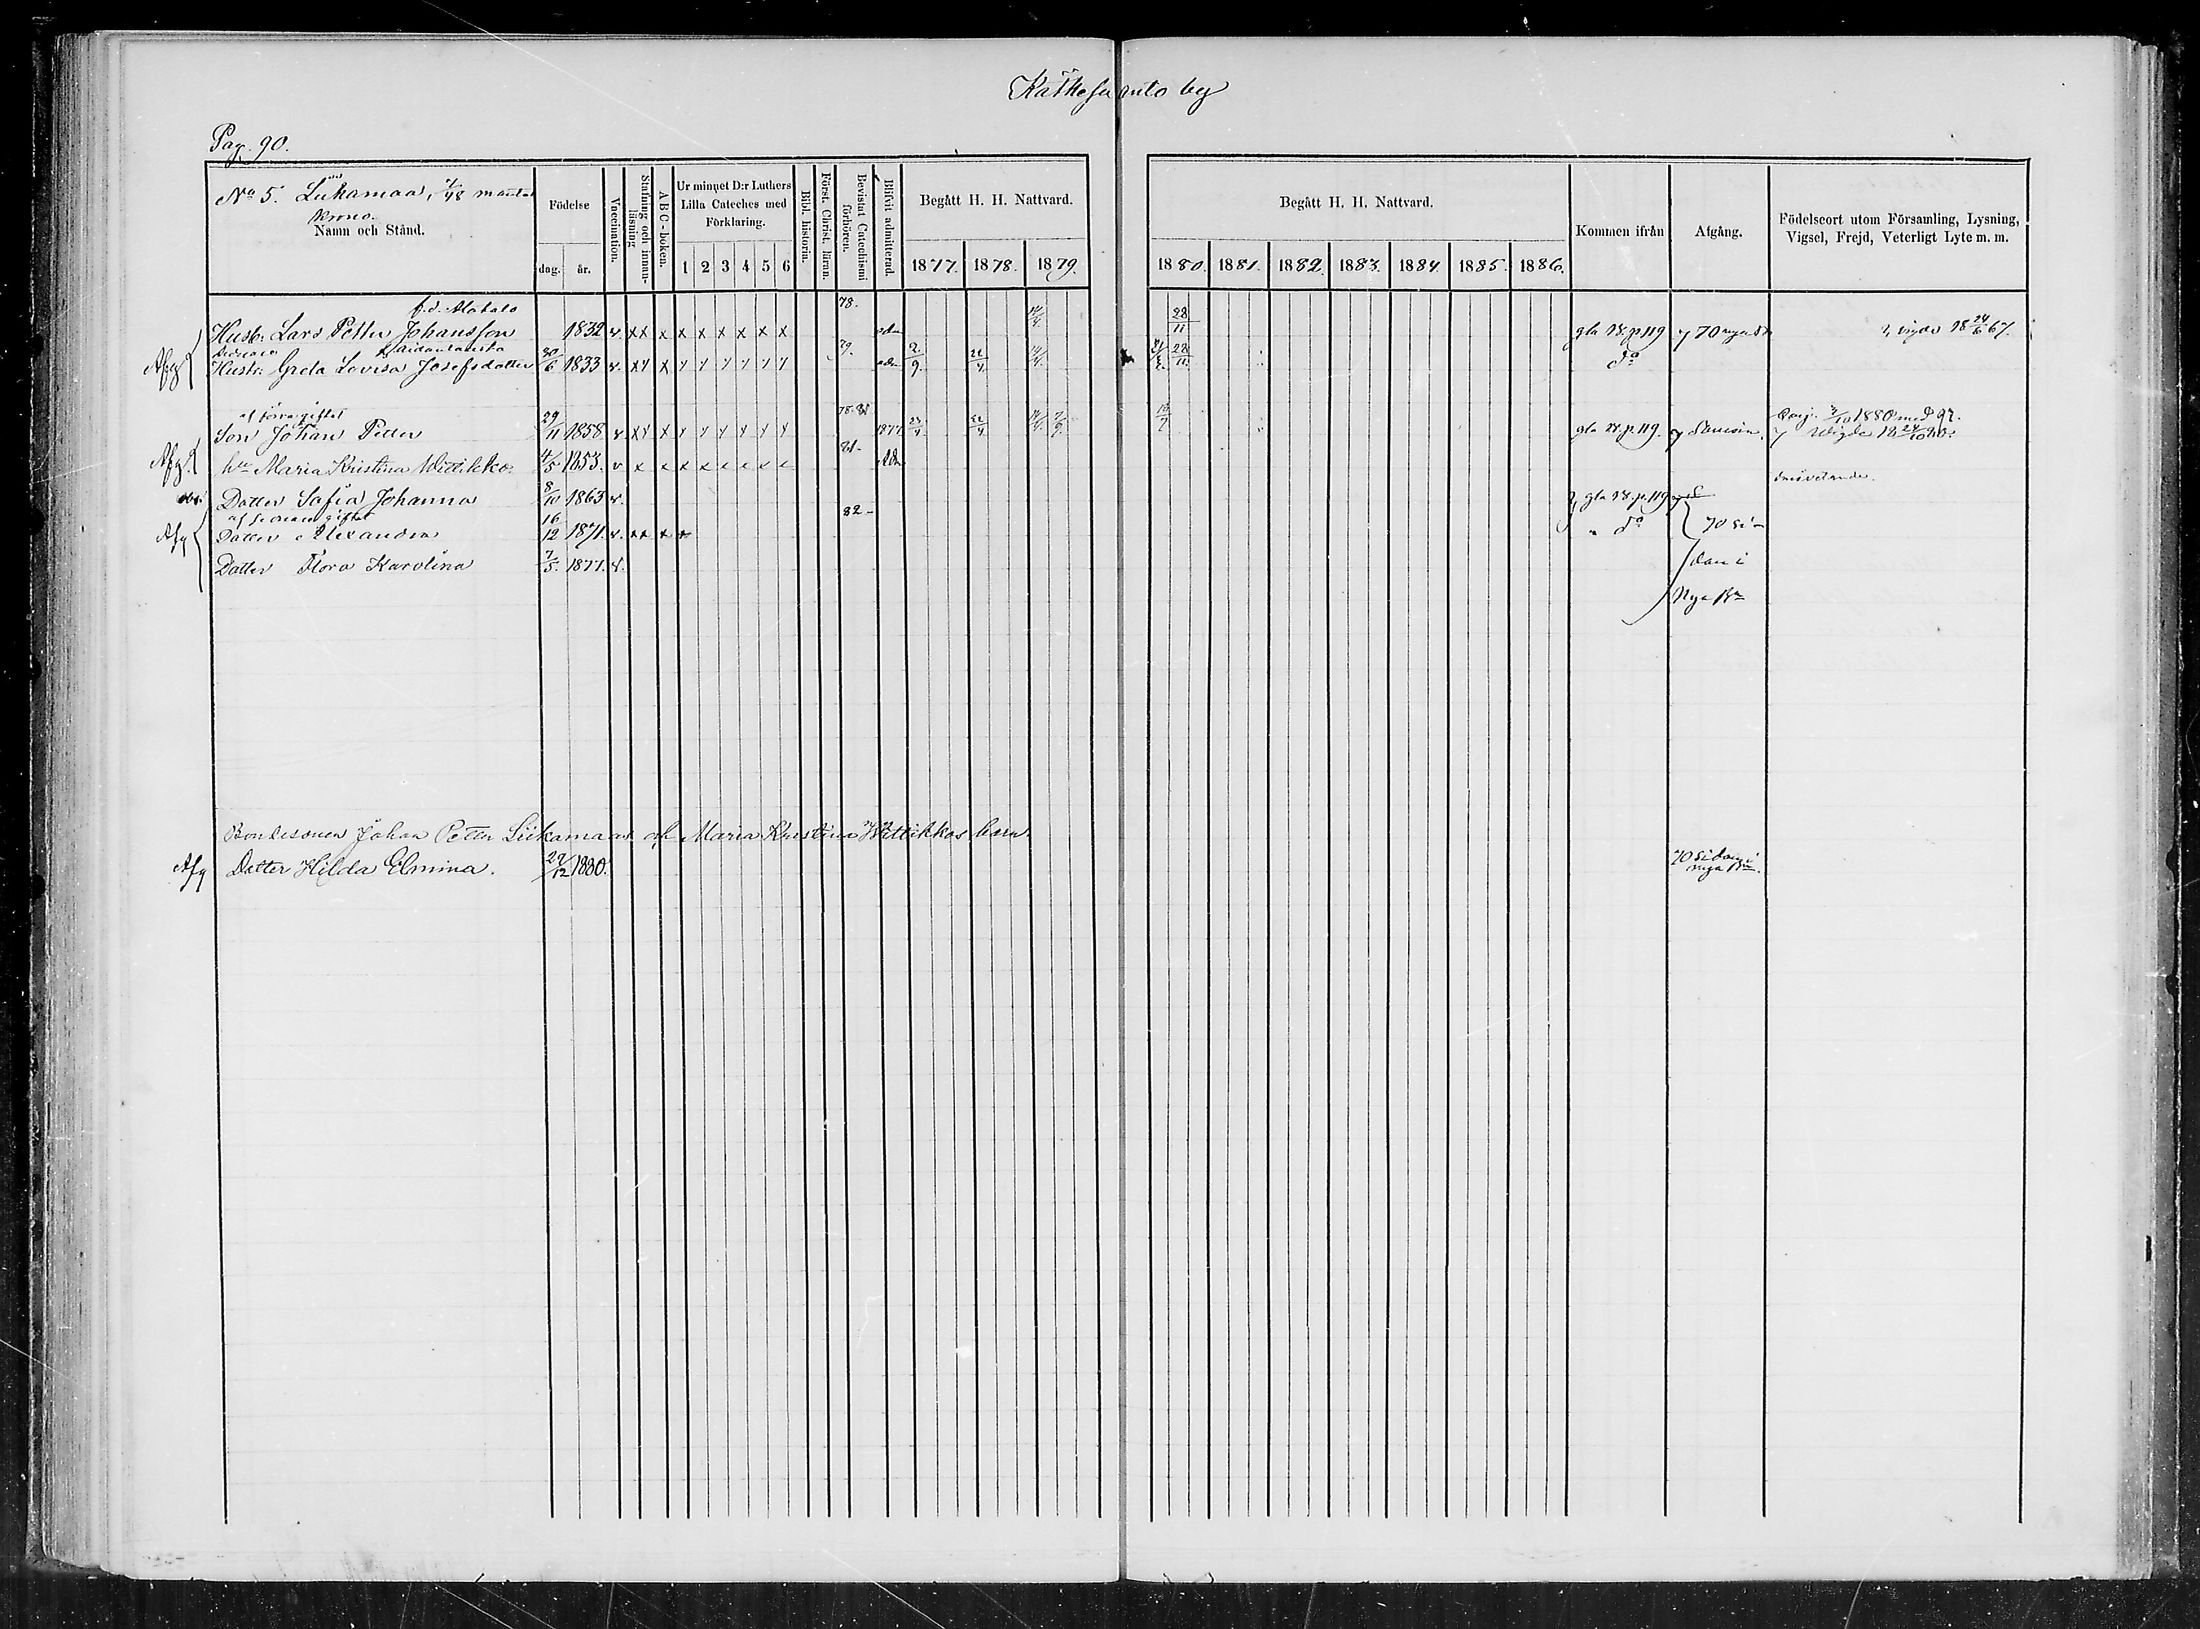 Kätkesuanto by
Pag. 90.
No 5. Liikamaa, 1/48 mantal
Krono.
Namn och Stånd.
Födelse
dag. år.
Vaccination.
Stafning och innanläsning
ABC-boken.
Ur minnet D:r Luthers Lilla Cateches med Förklaring.
1 2 3 4 5 6
Bibl. historia.
Först. Christ. läran.
Bevistat Catechismi förhören.
Blifvit admitterad.
Begått H. H. Nattvard.
1877. 1878. 1879.
Begått H. H. Nattvard.
1880. 1881. 1882. 1883. 1884. 1885. 1886.
Kommen ifrån
Afgång.
Födelseort utom Församling, Lysning, Vigsel, Frejd, Veterligt Lyte m. m.
f.d. Alatalo 78.
Husb: Lars Petter Johansson 1832 v. xx x x x x x x x adm 14/4 28/11 gla B. p. 119 70 nya B. vigde 18 24/6 67.
Afg Hustr: Greta Lovisa Josefsdotter 30/6 1833 v. xx x x x x x x x 79. adm 2/9 22/4 14/4 28/11 do
af förra giftet
Son Johan Petter 29/11 1858 v. xx x x x x x x x 78. 81 1877 23/4 22/4 gla B. p. 119. 3/10 1880 med
Afg. hu Maria Kristina Wittikko. 4/5 1853. v x x x x x x x x 81. adm
Dotter Safia Johanna 8/10 1863 v. gla B. p. 119
af sednare giftet 82
Afg Dotter Alexandra 16/12 1871. v. xx x x do 70 si-
Dotter Flora Karolina 7/5. 1877. v. dan i
Nya Bn
Bondesonen Johan Petter Liikamaas och Maria Kristina Wittikkos barn.
Afg Dotter Hilda Elmina. 29/12 1880. 70 sidan i nya Bn.